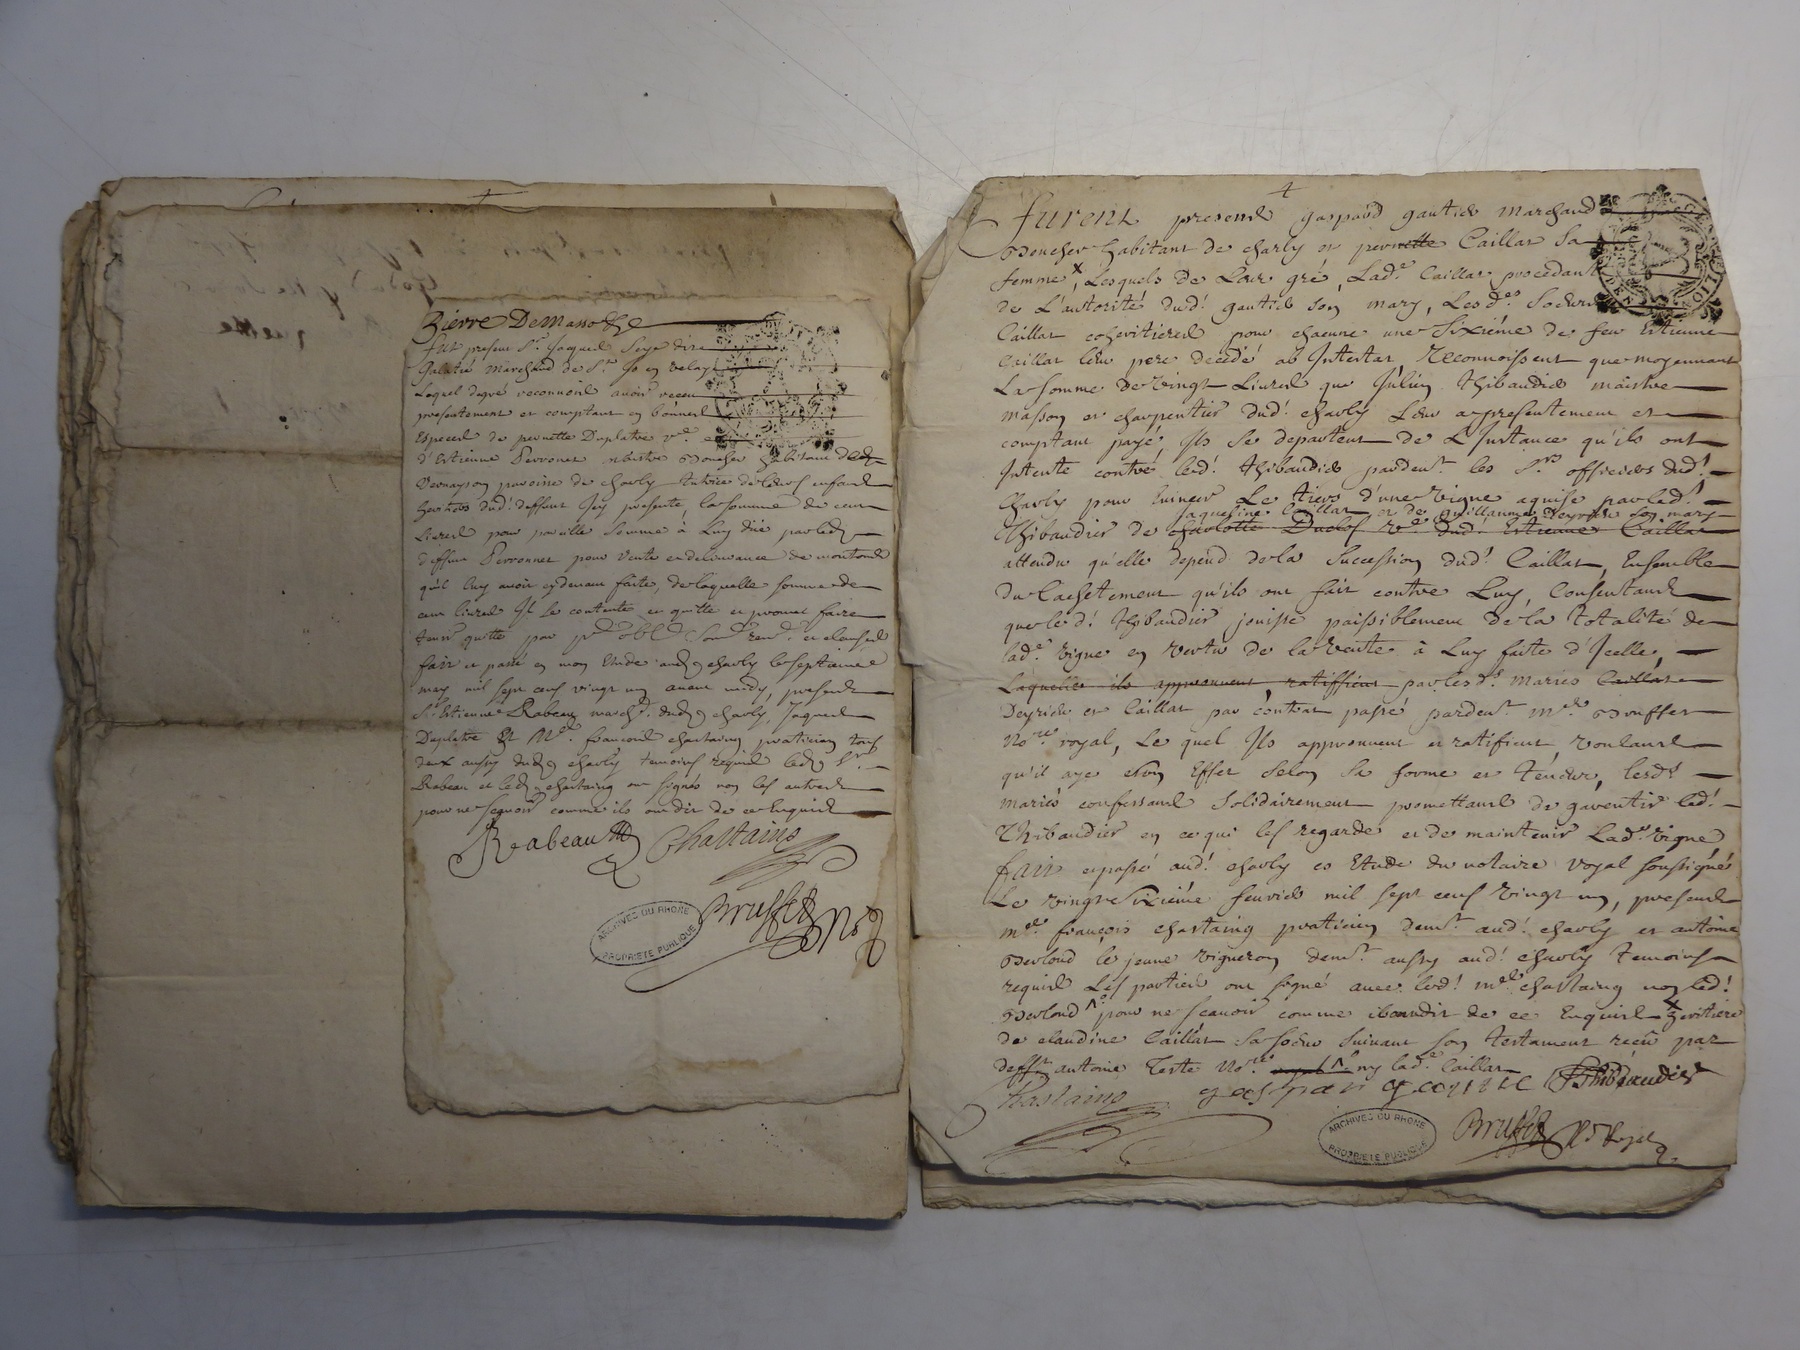 Pierre Demanoche
fut present Sr. Jacques Seyve dire
Galatin marchand de St. Jo en velay
Lequel degré reconnoit avoir receu
presentement et comptant en bonnes
Especes de pernette Duplatre vve.
d'Estienne Perronet maistre Boucher habitant de
Vernayson paroisse de charly tutrice de leurs enfans
heritiers dud! deffunt Icy presente, la somme de cent
Livres pour pareille somme à Luy düe par led
deffunt Perronnet pour vente et delivrance de moutons
qu'il luy avoit cydevant faite, de laquelle somme de
cent livres Il se contente et quitte et promet faire
tenir quitte par
fait et passé en mon Etude aud charly le septieme
may mil sept cens vingt un avant midy, presents
Sr. Estienne Rabeau march. dud charly, Jaques
Duplatre Et Me. francois chastaing praticien tous
deux aussy dud charly temoins requis led Sr.
Rabeau et led chastaing ont signés non les autres
pour ne sçavoir comme ils ont dit de ce Enquis
Rabeau Chastaing
ARCHIVES DU RHONE
PROPRIETE PUBLIQUE
Bruffet No
furent presens gaspard gautier marchand
Boucher habitant de charly et pernette Caillat sa
femme x, Lesquels de Leur gré, Lade. Caillat procedant
de L'autorité dud! gautier son mary, Lesdes. Soeurs
Caillat coheritieres pour chacune une sixiéme de feu Estienne
Caillat leur pere decédé ab Intestat, Reconnoissent que moyennant
La somme de vingt Livres que Julien Thibaudier maistre
masson et charpentier dud! charly Leur a presentement et
comptant payé, Ils se departent de L'Instance qu'ils ont
Intenté contre led! Thibaudier pardevt. les Srs. officiers dud!
Charly pour Evincer Le tiers d'une vigne aquise par led!
jaqueline Caillat et de guillaume Deyrieu son mary
Thibaudier de charlotte Duclos vve. dud. Estienne Caillat
attendu qu'elle depend de la Succession dud! Caillat, Ensemble
du Rachetement qu'ils ont fait contre Luy, Consentants
que led! Thibaudier jouisse paisiblement de la totalité de
lade. vigne en vertu de la vente à Luy faite d'Icelle,
Laquelle ils approuvent, ratiffient par lesds. mariés Caillat
Deyrieu et Caillat par contrat passé pardevt. Me. Bouffer
Nore. royal, Le quel Ils approuvent et ratifient, voulants
qu'il aye son Effet selon sa forme et teneur, lesds.
mariés confessants solidairement promettants de garentir led!
Thibaudier en ce qui les regarde et de maintenir Lade. vigne
fait et passé aud! charly en Etude du notaire royal soussigné
Le vingt sixiéme fevrier mil sept cens vingt un, presens
me. françois chastaing praticien demt. aud! charly et antoine
Berloud le jeune vigneron demt. aussy aud! charly temoins
requis Les parties ont signé avec led! me. chastaing non led!
Berloud pour ne scavoir comme il ont dit de ce Enquis x heritiere
de claudine Caillat sa soeur suivant son testament receu par
deffunt antoine Teste Nore. ny lade. Caillat
Chastaing gaspar gautie Thibaudier
ARCHIVES DU RHONE
PROPRIETE PUBLIQUE
Bruffet No Royal